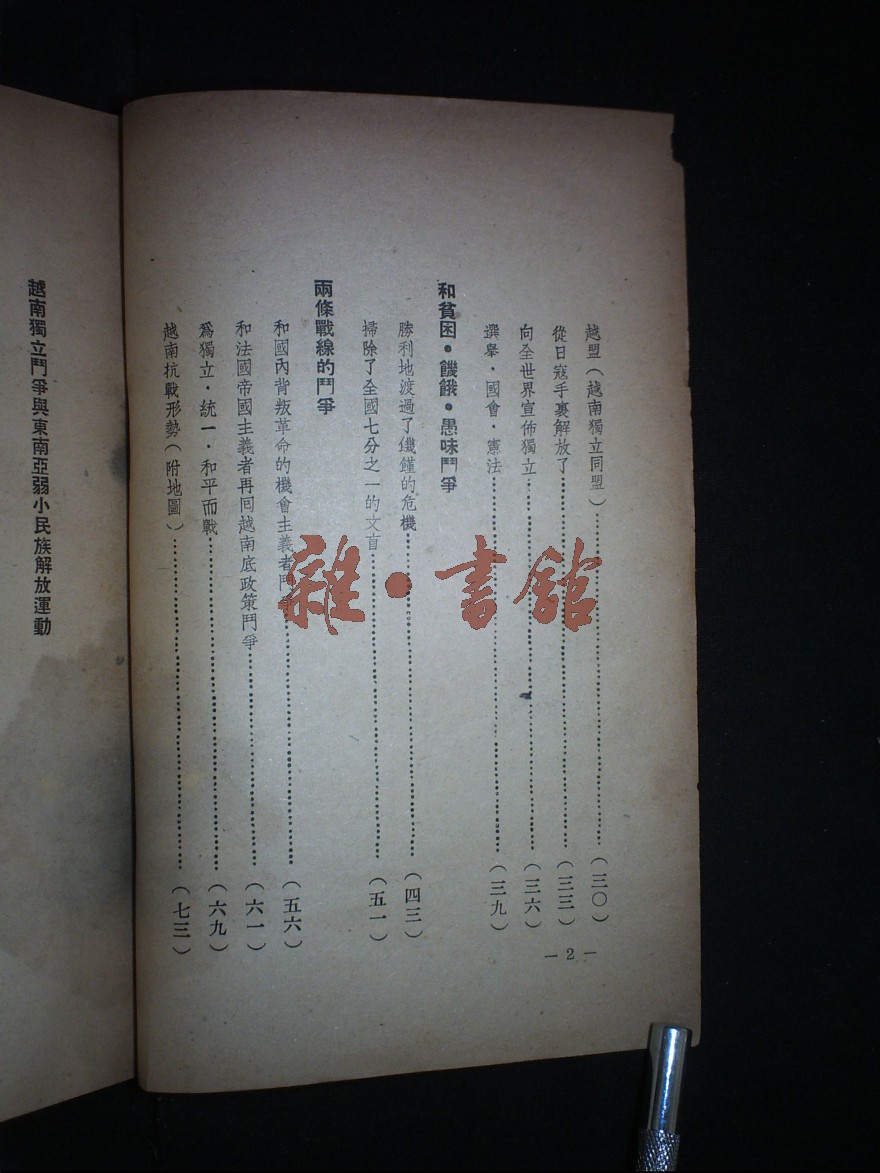 越盟(越南獨立同盟)……(三〇)
從日寇手裏解放了……(三三)
向全世界宣佈獨立……(三六)
選舉·國會·憲法……(三九)
和貧困·饑餓·愚味鬥爭
勝利地渡過了饑饉的危機……(四三)
掃除了全國七分之一的文盲……(五一)
兩條戰線的鬥爭
和國內背叛革命的機會主義者鬥爭……(五六)
和法國帝國主義者再回越南底政策鬥爭……(六一)
爲獨立·統一·和平而戰……(六九)
越南抗戰形勢(附地圖)……(七三)
—2—
越南獨立鬥爭與東南亞弱小民族解放運動
雜·書館